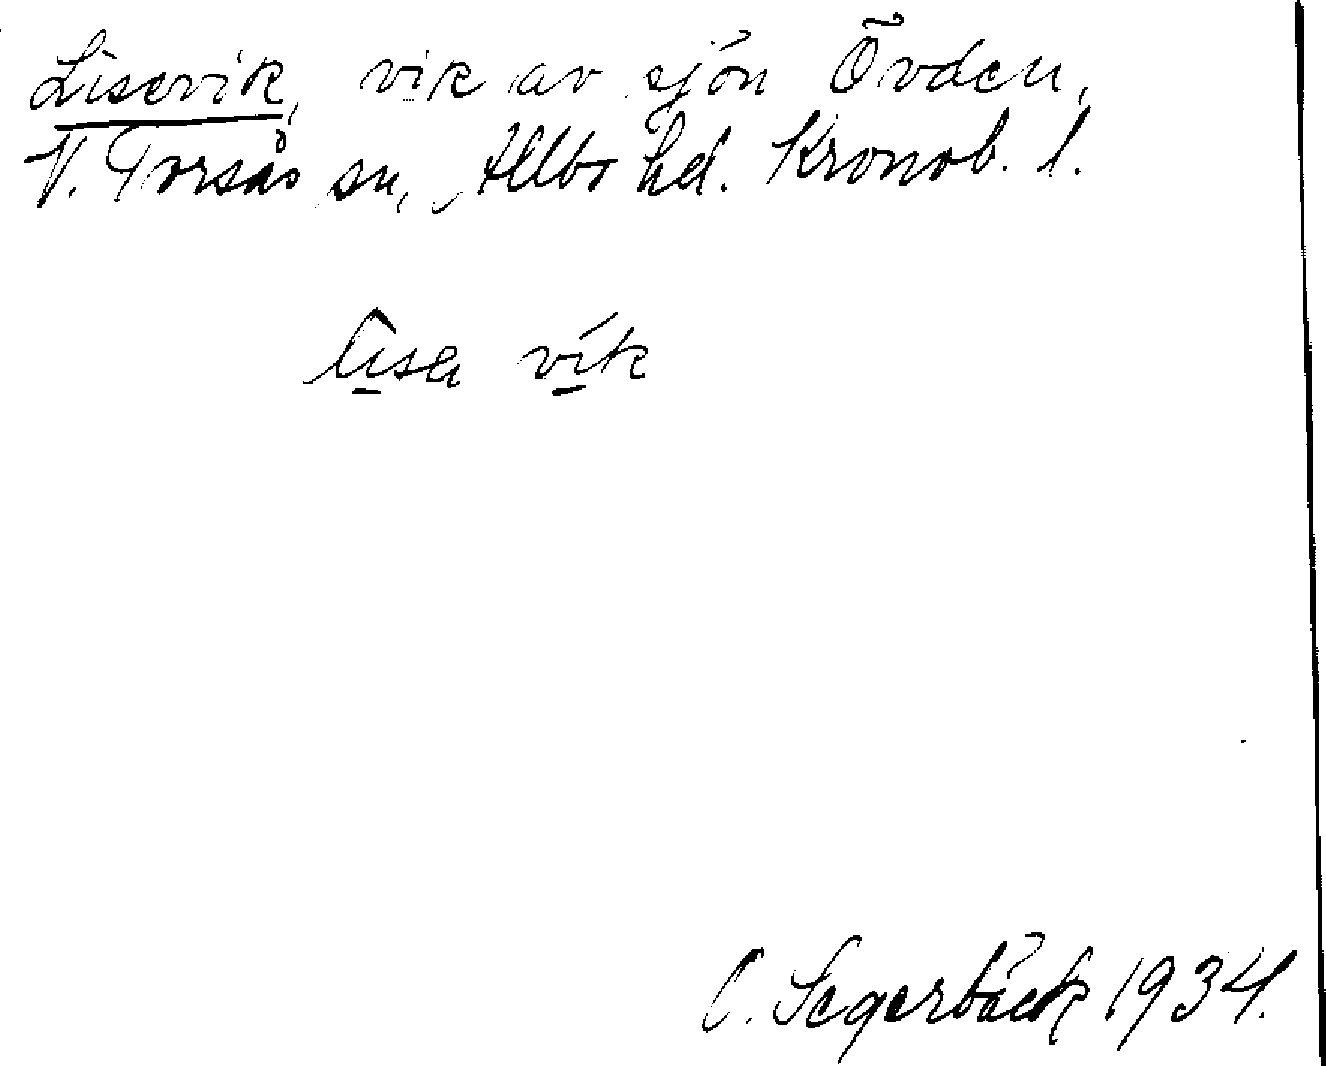 Lisevik, vik av sjön Övden,
V. Torsås sn, Allbo hd. Kronob. l.
lisa vik
C. Segerbäck 1934.